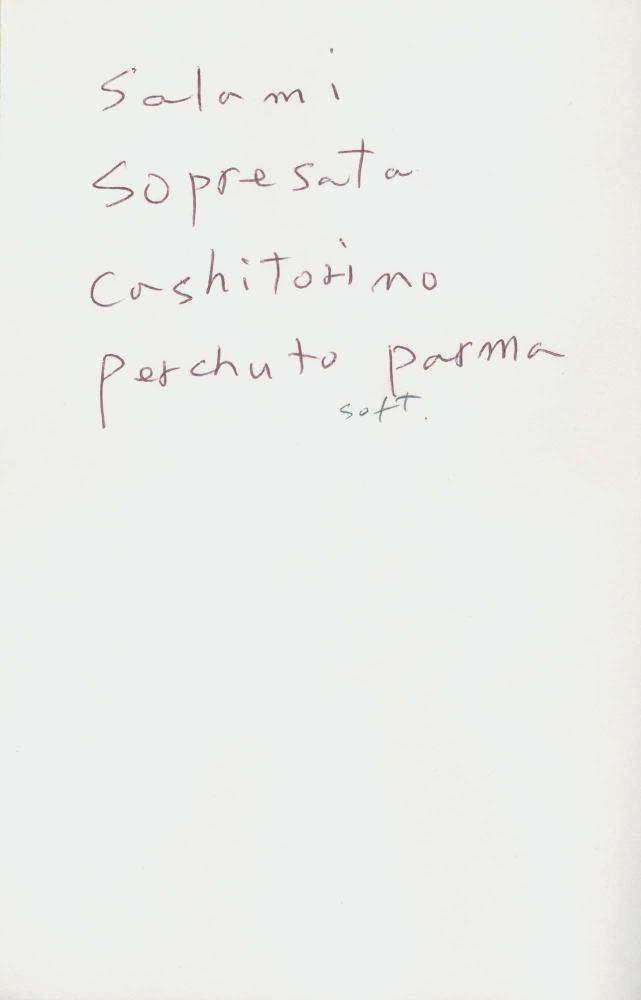 Salami
Sopresata
Cashitorino
perchuto parma
soft.